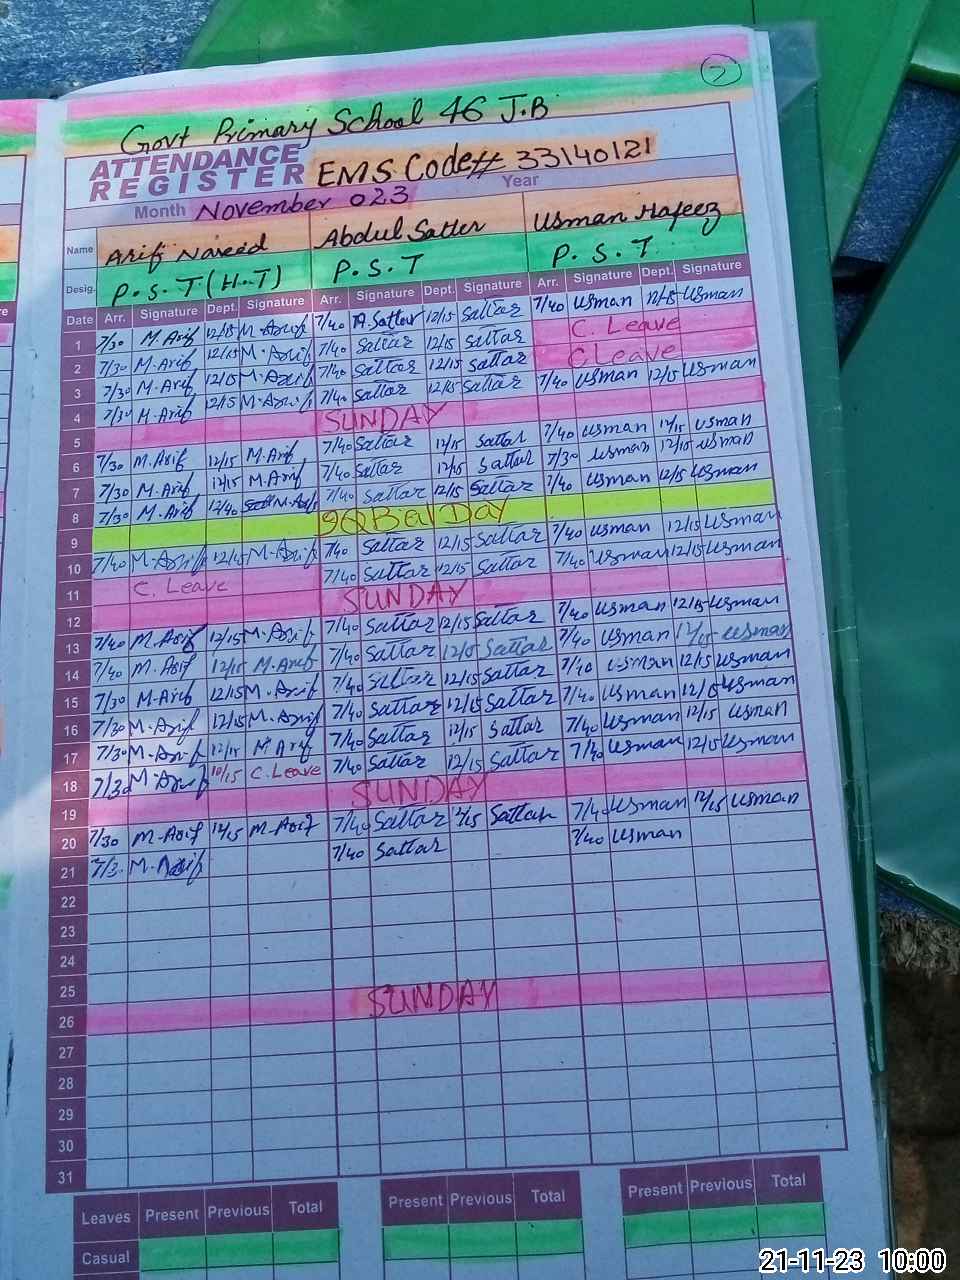 7
Govt Primary School 46 J.B
ATTENDANCE REGISTER EMS Code # 33140121
Month November 023 Year
Name Arif Naveed Abdul Satter Usman Hafeez
Desig. P.S.T (H.T) P.S.T P.S.T.
Date Arr. Signature Dept. Signature Arr. Signature Dept. Signature Arr. Signature Dept. Signature
1 7/30 M. Arif 12/15 M. Arif 7/40 A. Sattar 12/15 Sattar 7/40 usman 12/15 usman
2 7/30 M. Arif 12/15 M. Arif 7/40 Sattar 12/15 Sattar C. Leave
3 7/30 M. Arif 12/15 M. Arif 7/40 Sattar 12/15 Sattar C. Leave
4 7/30 M. Arif 12/15 M. Arif 7/40 Sattar 12/15 Sattar 7/40 usman 12/15 usman
5 SUNDAY
6 7/30 M. Arif 12/15 M. Arif 7/40 Sattar 12/15 Sattar 7/40 usman 12/15 usman
7 7/30 M. Arif 12/15 M. Arif 7/40 Sattar 12/15 Sattar 7/30 usman 12/15 usman
8 7/30 M. Arif 12/40 M. Arif 7/40 Sattar 12/15 Sattar 7/40 usman 12/15 usman
9 Day
10 7/40 M. Arif 12/15 M. Arif 7/40 Sattar 12/15 Sattar 7/40 usman 12/15 usman
11 C. Leave 7/40 Sattar 12/15 Sattar 7/40 usman 12/15 usman
12 SUNDAY
13 7/40 M. Arif 12/15 M. Arif 7/40 Sattar 12/15 Sattar 7/40 usman 12/15 usman
14 7/40 M. Arif 12/15 M. Arif 7/40 Sattar 12/15 Sattar 7/40 usman 12/15 usman
15 7/30 M. Arif 12/15 M. Arif 7/40 Sattar 12/15 Sattar 7/40 usman 12/15 usman
16 7/30 M. Arif 12/15 M. Arif 7/40 Sattar 12/15 Sattar 7/40 usman 12/15 usman
17 7/30 M. Arif 12/15 M. Arif 7/40 Sattar 12/15 Sattar 7/40 usman 12/15 usman
18 7/30 M. Arif 10/15 C. Leave 7/40 Sattar 12/15 Sattar 7/40 usman 12/15 usman
19 SUNDAY
20 7/30 M. Arif 12/15 M. Arif 7/40 Sattar 12/15 Sattar 7/40 usman 12/15 usman
21 7/3. M. Arif 7/40 Sattar 7/40 usman
22
23
24
25
26 SUNDAY
27
28
29
30
31
Leaves Present Previous Total Present Previous Total Present Previous Total
Casual
21-11-23 10:00